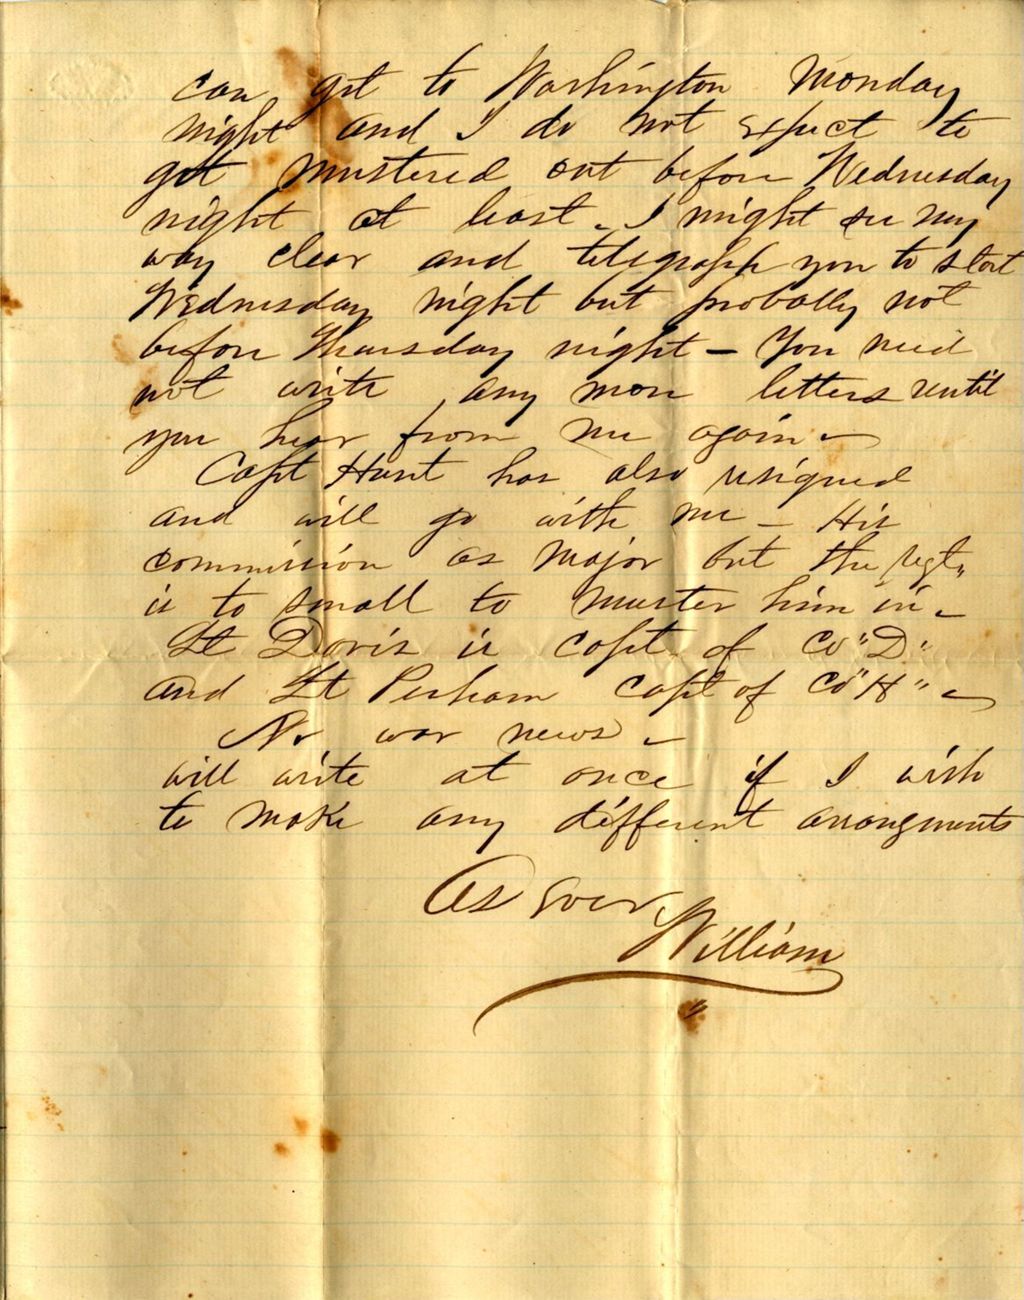 can get to Washington Monday
night and I do not expect to
get mustered out before Wednesday
night at least. I might see my
way clear and telegraph you to start
Wednesday night but probally not
before Thursday night – You need
not write any more letters until
you hear from me again –
Capt Hunt has also resigned
and will go with me – His
commission as Major but the regt.,
is to small to muster him in –
Lt Davis is capt. of Co "D"
and Lt Perham capt of Co "H" –
No war news –
will write at once if I wish
to make any different arrangments
As ever,
William
"